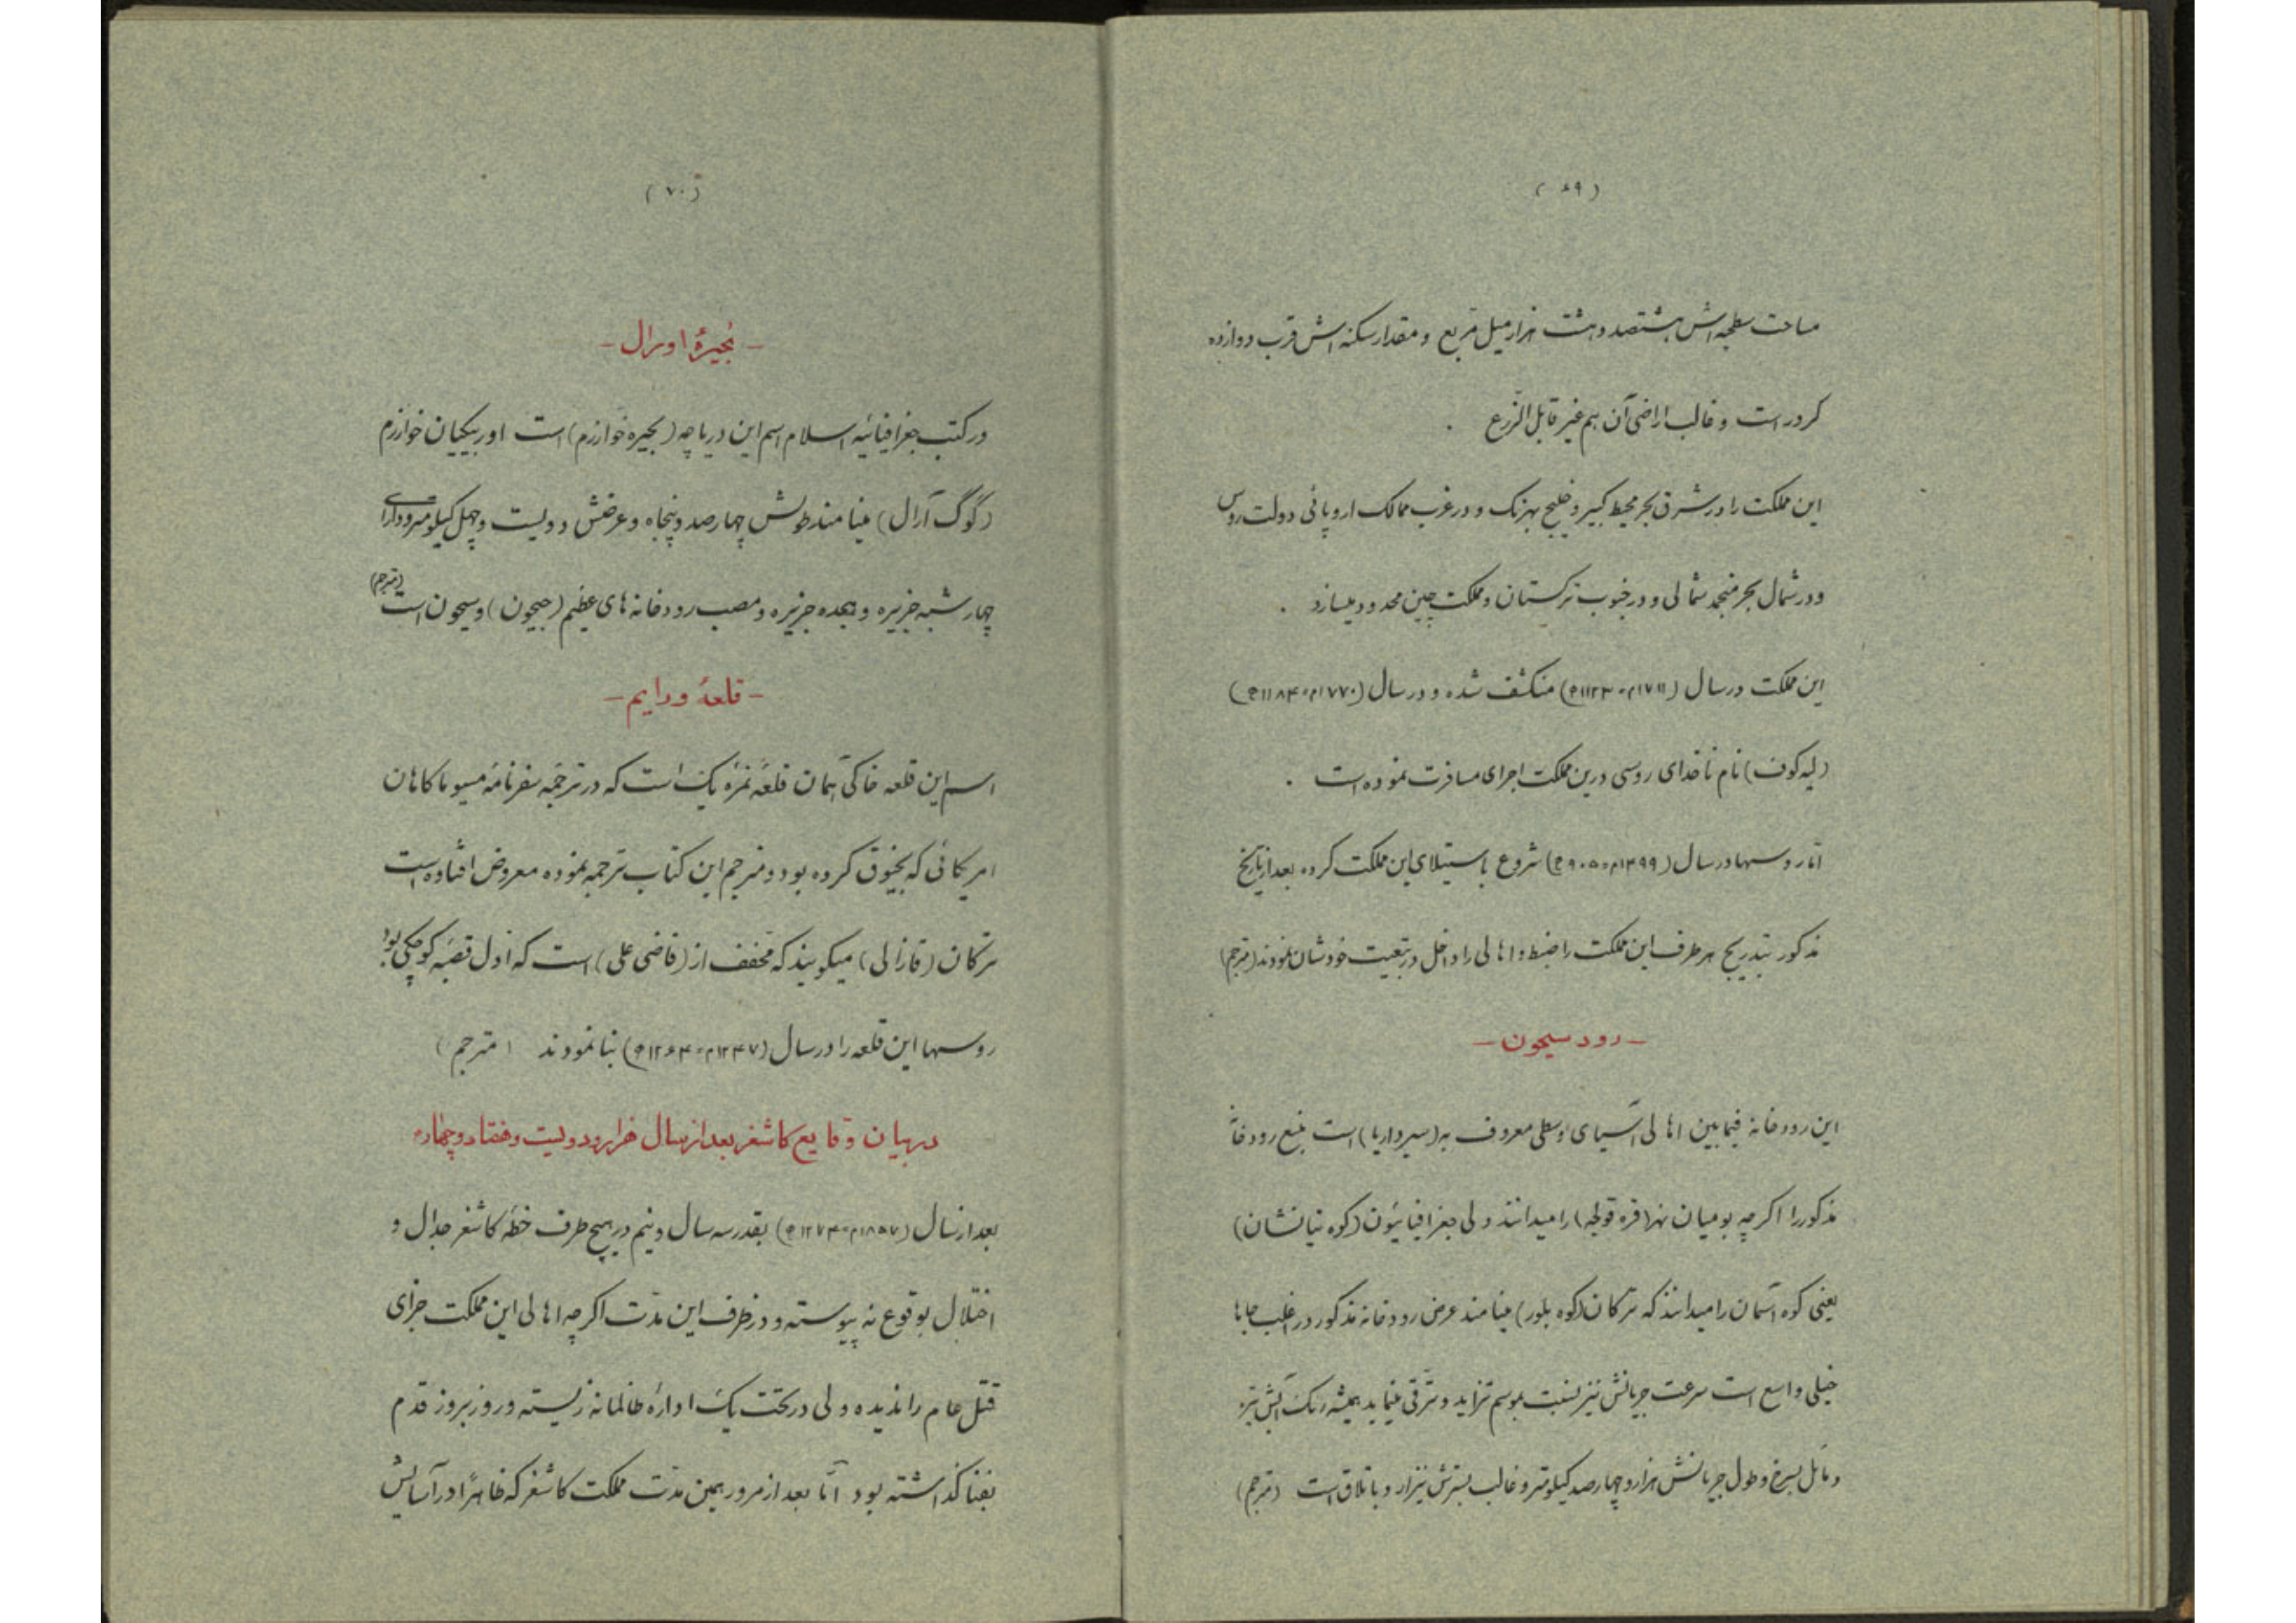 (۶۹)
مساحت سطحیه‌اش هشتصد و هشت هزار میل مربع و مقدار سکنه‌اش قرب دوازده
کرور است و غالب اراضی آن هم غیر قابل الزرع .
این مملکت را در شرق بحر محیط کبیر و خلیج بهرنک و در غرب ممالک اروپائی دولت روس
و در شمال بحر منجمد شمالی و در جنوب ترکستان و مملکت چین محدود میسازد .
این مملکت در سال (۱۷۱۱م=۱۱۲۳ه) منکشف شده و در سال (۱۷۷۰م=۱۱۸۴ه)
(لیه‌کوف) نام ناخدای روسی درین مملکت اجرای مسافرت نموده است .
امّا روسها در سال (۱۴۹۹م=۹۰۵ه) شروع باستیلای این مملکت کرده بعد از تاریخ
مذکور بتدریج هر طرف این مملکت را ضبط و اهالی را داخل در تبعیت خودشان نمودند (مترجم)
— رود سیحون —
این رودخانه فیمابین اهالی آسیای وسطی معروف به (سیر داریا) است منبع رودخانهٔ
مذکور را اکرچه بومیان نهر (قره قولجه) را میدانند ولی جغرافیائیون (کوه تیانشان)
یعنی کوه آسمان را میدانند که ترکان (کوه بلور) مینامند عرض رودخانه مذکور در اغلب جاها
خیلی واسع است سرعت جریانش نیز نسبت بموسم تزاید و ترقی مینماید همیشه رنک آبش تیره
و مائل بسرخ و طول جریانش هزار و چهارصد کیلومتر و غالب بسترش نیزار و باتلاق است (مترجم)
(۷۰)
— بُحیرهٔ اورال —
در کتب جغرافیائیه اسلام اسم این دریاچه (بحیره خوارزم) است اوزبیکیان خوارزم
(گوگ آرال) مینامند طولش چهارصد و پنجاه و عرضش دویست و چهل کیلومتر و دارای
چهار شبه جزیره و هجده جزیره و مصب رودخانه‌های عظیم (جیحون) و سیحون است (مترجم)
— قلعهٔ ورایم —
اسم این قلعه خاکی همان قلعهٔ نمرهٔ یک است که در ترجمهٔ سفرنامهٔ مسیو ماکاهان
امریکائی که بخیوق کرده بود و مترجم این کتاب ترجمه نموده معروض افتاده است
ترکان (قازالی) میکویند که مخفف از (قاضی علی) است که اول قصبه کوچکی بود
روسها این قلعه را در سال (۱۲۴۷م=۱۲۶۴ه) بنا نمودند (مترجم)
در بیان وقایع کاشغر بعد از سال هزار و دویست و هفتاد و چهارم
بعد از سال (۱۸۵۷م=۱۲۷۴ه) بقدر سه سال و نیم در هیچ طرف خطهٔ کاشغر جدال و
اختلال بوقوع نه پیوسته و در ظرف این مدّت اکرچه اهالی این مملکت جزای
قتل عام را ندیده ولی در تحت یک ادارهٔ ظالمانه زیسته و روز بروز قدم
بفنا کذاشته بود امّا بعد از مرور همین مدّت مملکت کاشغر که ظاهراً در آسایش